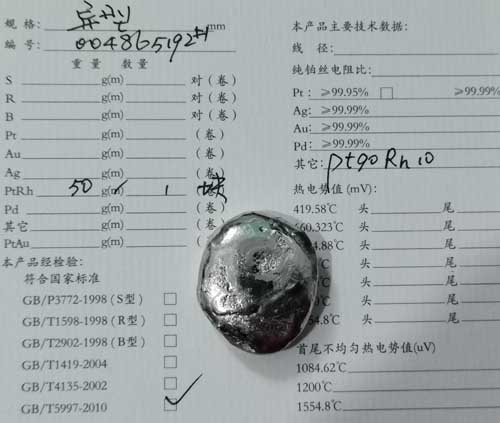 规 格: 异型 mm
编 号: 004865192#1
重 量 数 量
S g(m) 对 (卷)
R g(m) 对 (卷)
B g(m) 对 (卷)
Pt g(m) (卷)
Au g(m) (卷)
Ag g(m) (卷)
PtRh 50 g(m) 1 块
Pd g(m) (卷)
其它 g(m)
PtAu g(m)
本产品经检验:
符合国家标准
GB/P3772-1998 (S型)
GB/T1598-1998 (R型)
GB/T2902-1998 (B型)
GB/T1419-2004
GB/T4135-2002
GB/T5997-2010
本产品主要技术数据:
线 径:
纯铂丝电阻比:
Pt: ≥99.95% ≥99.99%
Ag: ≥99.99%
Au: ≥99.99%
Pd: ≥99.99%
其它: Pt90Rh10
热电势值 (mV):
419.58℃ 头 尾
660.323℃ 头 尾
4.88℃ 头 尾
℃ 头 尾
℃ 头 尾
℃ 头 尾
54.8℃ 头 尾
首尾不均匀热电势值(uV)
1084.62℃
1200℃
1554.8℃